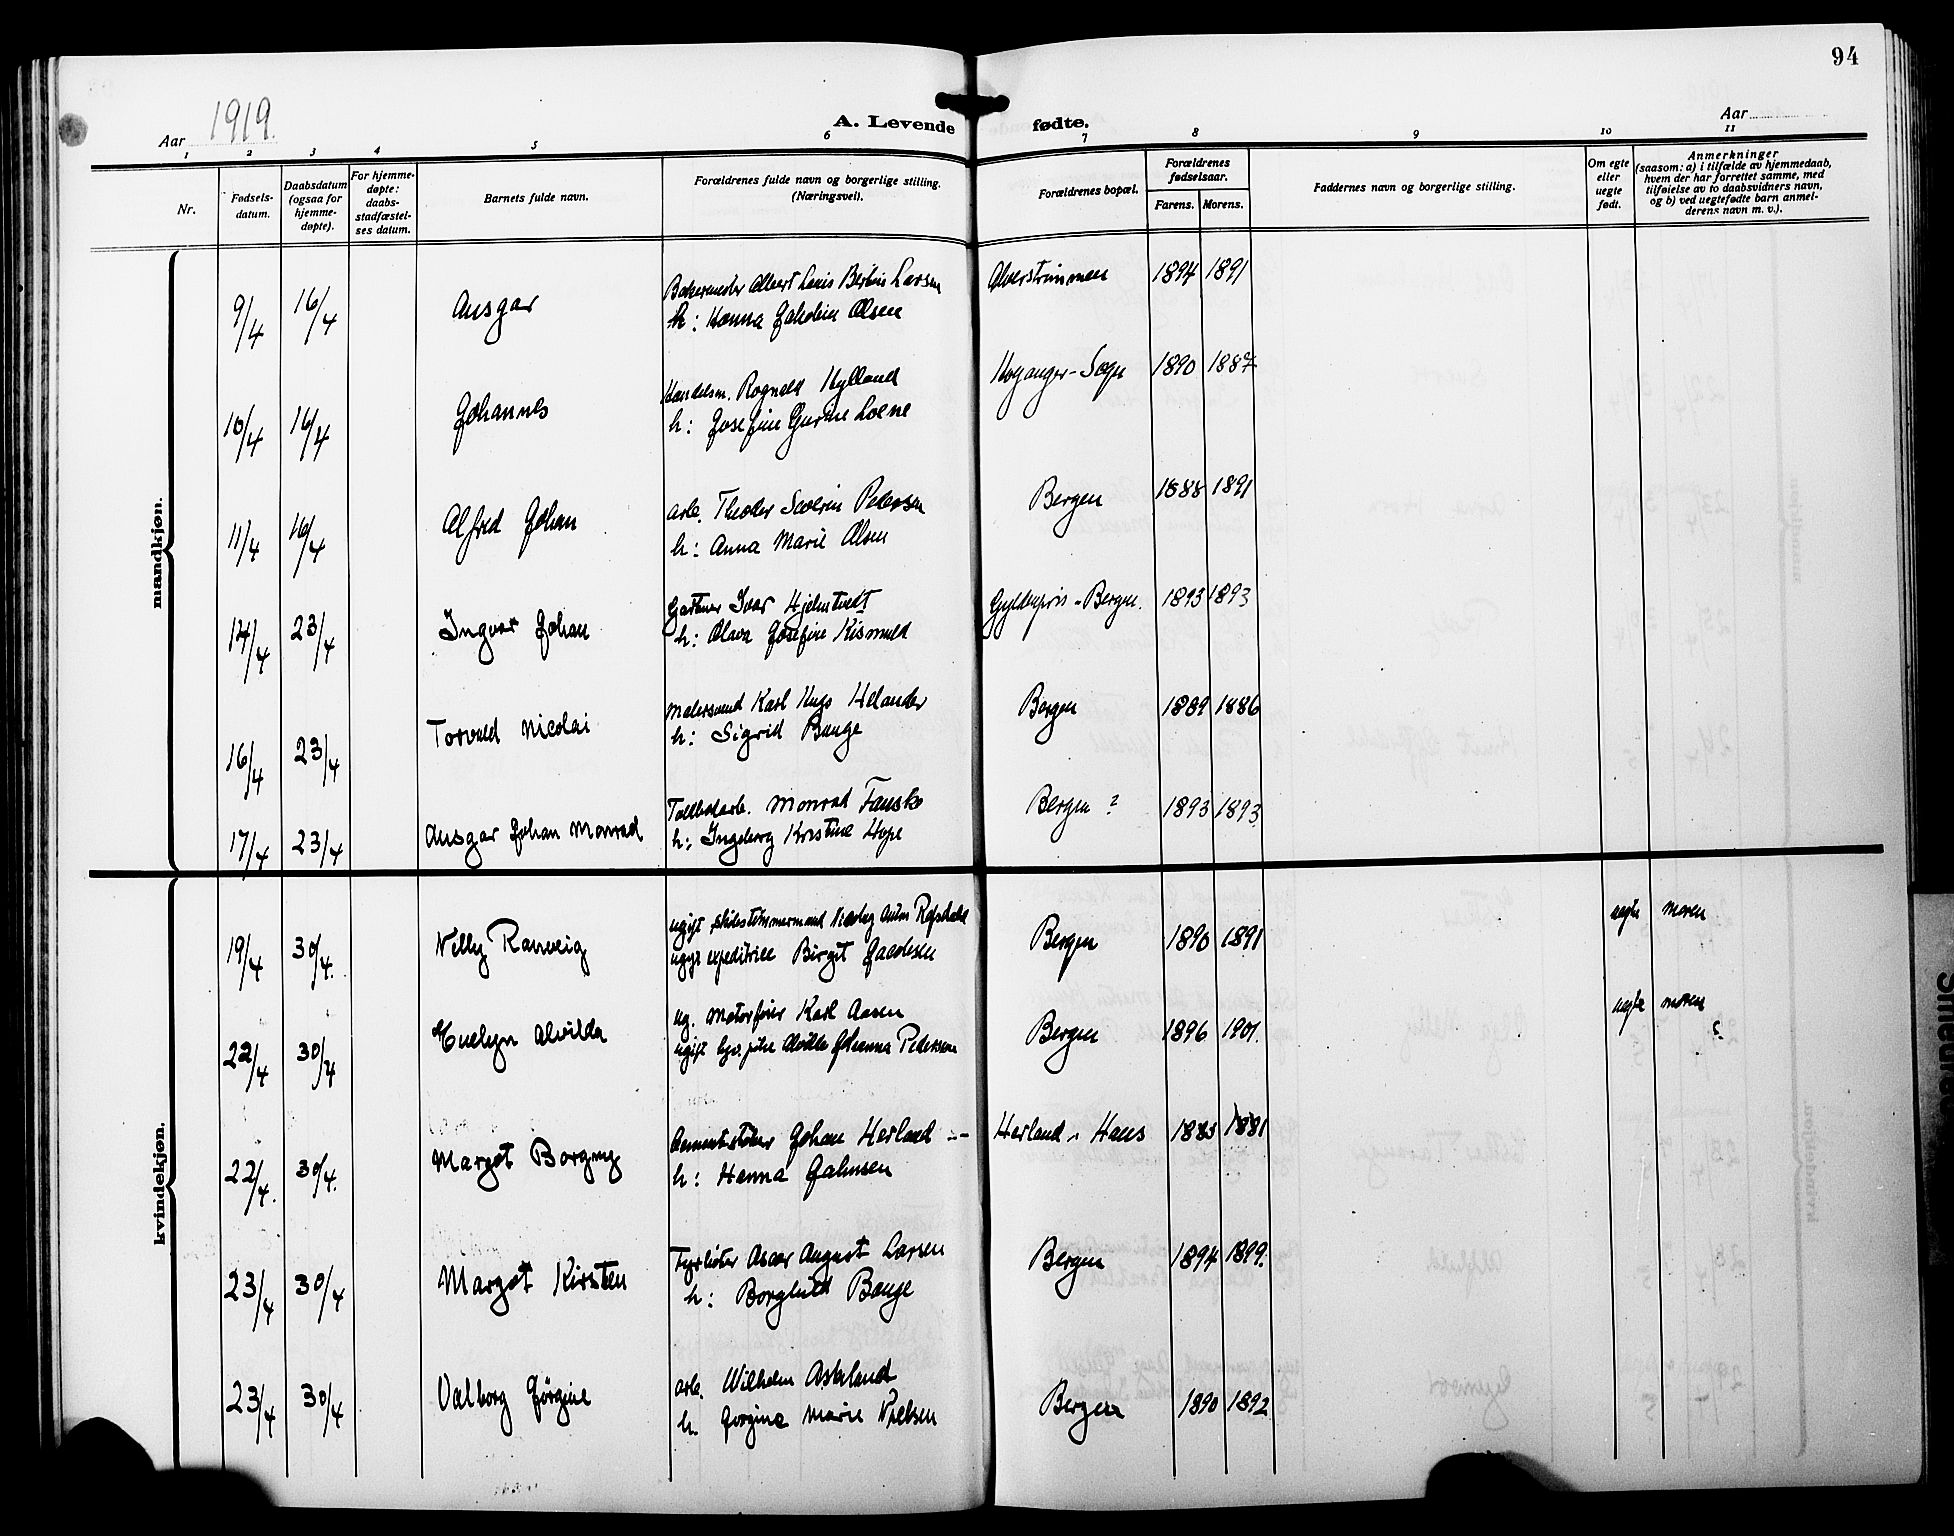 94
Aar 1919.
A. Levende fødte.
Aar
1 2 3 4 5 6 7 8 9 10 11
Nr.
Fødsels-
datum.
Daabsdatum
(ogsaa for
hjemme-
døpte).
For hjemme-
døpte:
daabs-
stadfæstel-
ses datum.
Barnets fulde navn.
Forældrenes fulde navn og borgerlige stilling.
(Næringsvei).
Forældrenes bopæl.
Forældrenes
fødselsaar.
Farens. Morens.
Faddernes navn og borgerlige stilling.
Om egte
eller
uegte
født.
Anmerkninger
(saasom: a) i tilfælde av hjemmedaab,
hvem der har forrettet samme, med
tilføielse av to daabsvidners navn,
og b) ved uegtefødte barn anmel-
derens navn m. v.).
mandkjøn.
9/4 16/4 Ansgar Albert Louis Larsen Alverstrømmen 1894 1891
h: Hanna Olsen
10/4 16/4 Johannes Handelsm. Rognald Hylland Høyanger-Sogn 1890 1887
h: Josefine Loene
11/4 16/4 Alfred Johan arb. Theodor Severin Petersen Bergen 1888 1891
h: Anna Marie Olsen
14/4 23/4 Ingvar Johan Gartner Ivar Hjelmtvedt Gyldenpris-Bergen. 1893 1893
h: Olava Josefine Kismul
16/4 23/4 Torvald Nicolai Malersvend Karl Hugo Helander Bergen 1889 1886
h: Sigrid Bauge
17/4 23/4 Ansgar Johan Monrad Toldbodarb. Monrad Fauske Bergen ? 1893 1893
h: Ingeborg Kristine Hope
kvindekjøn.
19/4 30/4. Nelly Ranveig ugift skibstømmermand Refsdahl Bergen 1890 1891 uegte moren
ugift expeditrice Birgit Jacobsen
22/4 30/4 Evelyn Alvilda ug. Motorfører Karl Aasen Bergen 1896 1901. uegte moren
ugift Alvilda Johanna Pedersen
22/4. 30/4. Margot Borgny Cementstøber Johan Herland Herland, Haus 1883 1881
h: Hanna Johnsen
23/4 30/4 Margot Kirsten Fyrbøter Oscar August Larsen Bergen 1894 1899.
h: Borghild Bauge
23/4 30/4 Valborg Jørgine arb. Wilhelm Askeland Bergen 1890 1892
h. Jørgine Marie Nielsen